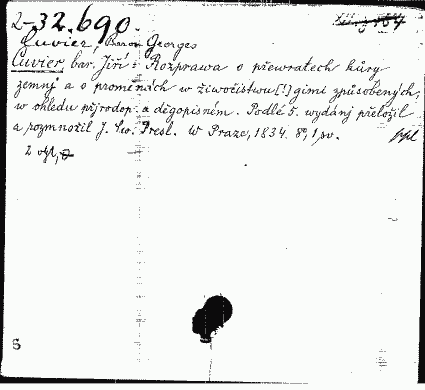 2-32.690
Cuvier, Baron Georges
Cuvier, bar. Jiří: Rozprawa o převratech kůry
zemnj a o proměnách w žiwočistwu [!] gimi způsobených,
w ohledu přjrodop. a děgopisném. Podlé 5. wydánj přeložil
a rozmnožil J. Sw. Presl. W Praze, 1834. 8°, 1 sv.
ppl